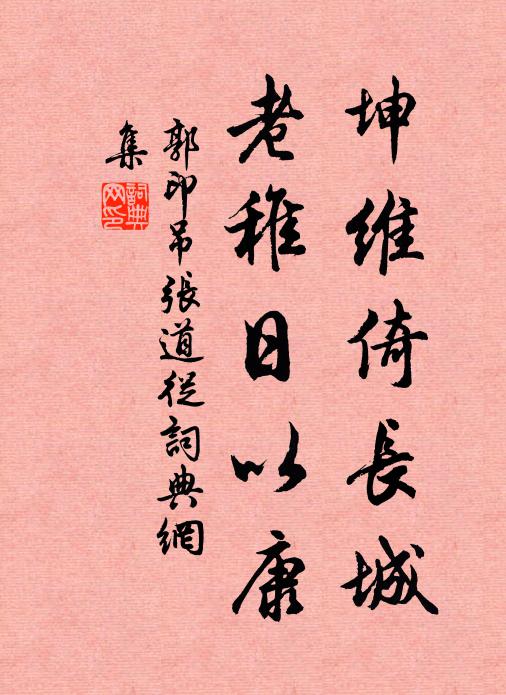 坤維倚長城
老稚日以康
郭印吊張道從詞典網
集
詞典
网印